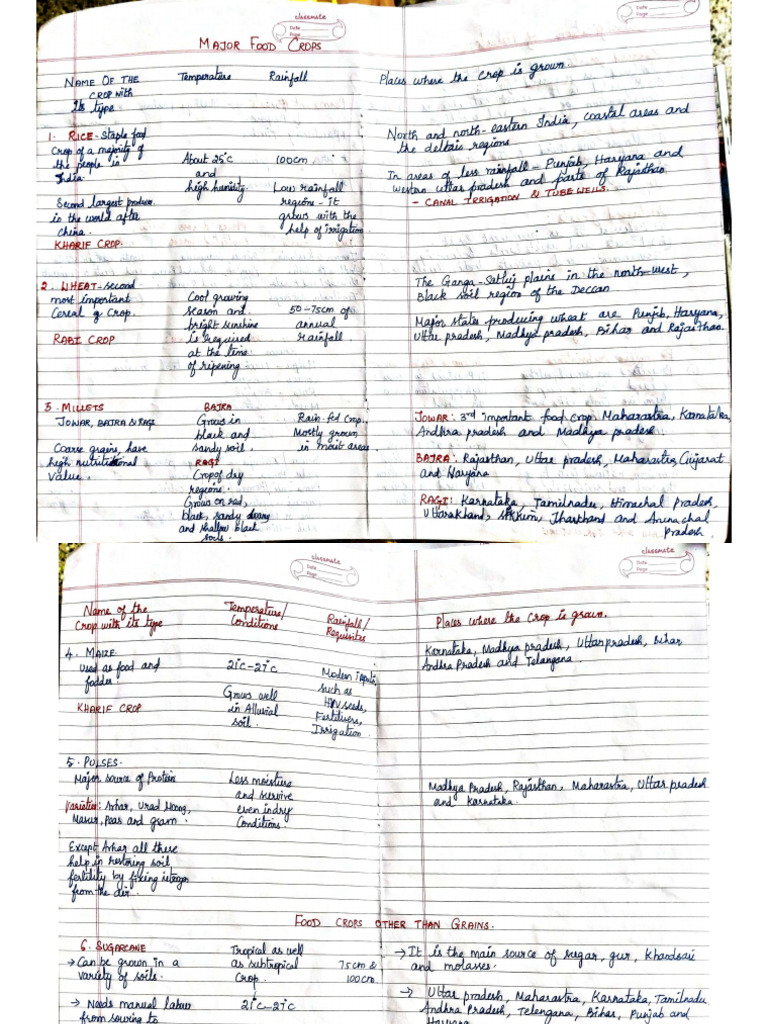 classmate
Date
Page
Date
Page
MAJOR FOOD CROPS
NAME OF THE CROP WITH Its type
Temperature
Rainfall
Places where the crop is grown.
1. RICE - Staple food
crop of a majority of
the people in
India.
Second largest produce
in the world after
china.
KHARIF CROP.
About 25°C
and
high humidity.
100cm
Low rainfall
regions - it
grows with the
help of irrigation
North and north-eastern India, coastal areas and
the deltais regions
In areas of less rainfall - Punjab, Haryana and
western uttar pradesh and parts of Rajasthan
- CANAL IRRIGATION & TUBE WELLS.
2. WHEAT - second
most important
Cereal g Crop.
RABI CROP
Cool growing
season and
bright sunshine
is required
at the time
of ripening.
50-75cm of
annual
rainfall.
The Ganga-Satluj plains in the north-west,
Black soil region of the Deccan
Major states producing wheat are Punjab, Haryana,
Uttar pradesh, Madhya pradesh, Bihar and Rajasthan.
3. MILLETS
JOWAR, BAJRA & RAGI
Coarse grains, have
high nutritional
value.
BAJRA
Grows in
black and
sandy soil.
RAGI
Crop of dry
regions.
Grows on red,
black, sandy loamy
and shallow black
soils.
Rain-fed Crop.
Mostly grown
in moist areas
JOWAR: 3rd important food crop. Maharastra, Karnataka,
Andhra pradesh and Madhya pradesh.
BAJRA: Rajasthan, Uttar pradesh, Maharastra, Gujarat
and Haryana
RAGI: Karnataka, Tamilnadu, Himachal pradesh,
Uttarakhand, Sikkim, Jharkhand and Arunachal
Pradesh.
classmate
Date
Page
classmate
Date
Page
Name of the
Crop with its type
Temperature/
Conditions
Rainfall/
Requisites
Places where the Crop is grown.
4. MAIZE
Used as food and
fodder.
KHARIF CROP
21°C-27°C
Grows well
in Alluvial
soil.
Modern inputs
such as
HYV seeds,
Fertilizers,
Irrigation.
Karnataka, Madhya pradesh, Uttar pradesh, Bihar,
Andhra Pradesh and Telangana.
5. PULSES.
Major source of Protein
Varieties: Arhar, Urad Moong,
Masur, Peas and gram.
Except Arhar all these
help in restoring soil
fertility by fixing nitrogen
from the air.
Less moisture
and survive
even in dry
Conditions.
Madhya Pradesh, Rajasthan, Maharastra, Uttar pradesh
and Karnataka.
FOOD CROPS OTHER THAN GRAINS.
6. SUGARCANE
→ Can be grown in a
variety of soils.
→ Needs manual labour
from sowing to
Tropical as well
as subtropical
Crop.
21°C-27°C
75cm &
100cm.
→ It is the main source of sugar, gur, Khandsari
and molasses.
→ Uttar pradesh, Maharastra, Karnataka, Tamilnadu
Andhra Pradesh, Telengana, Bihar, Punjab and
Haryana